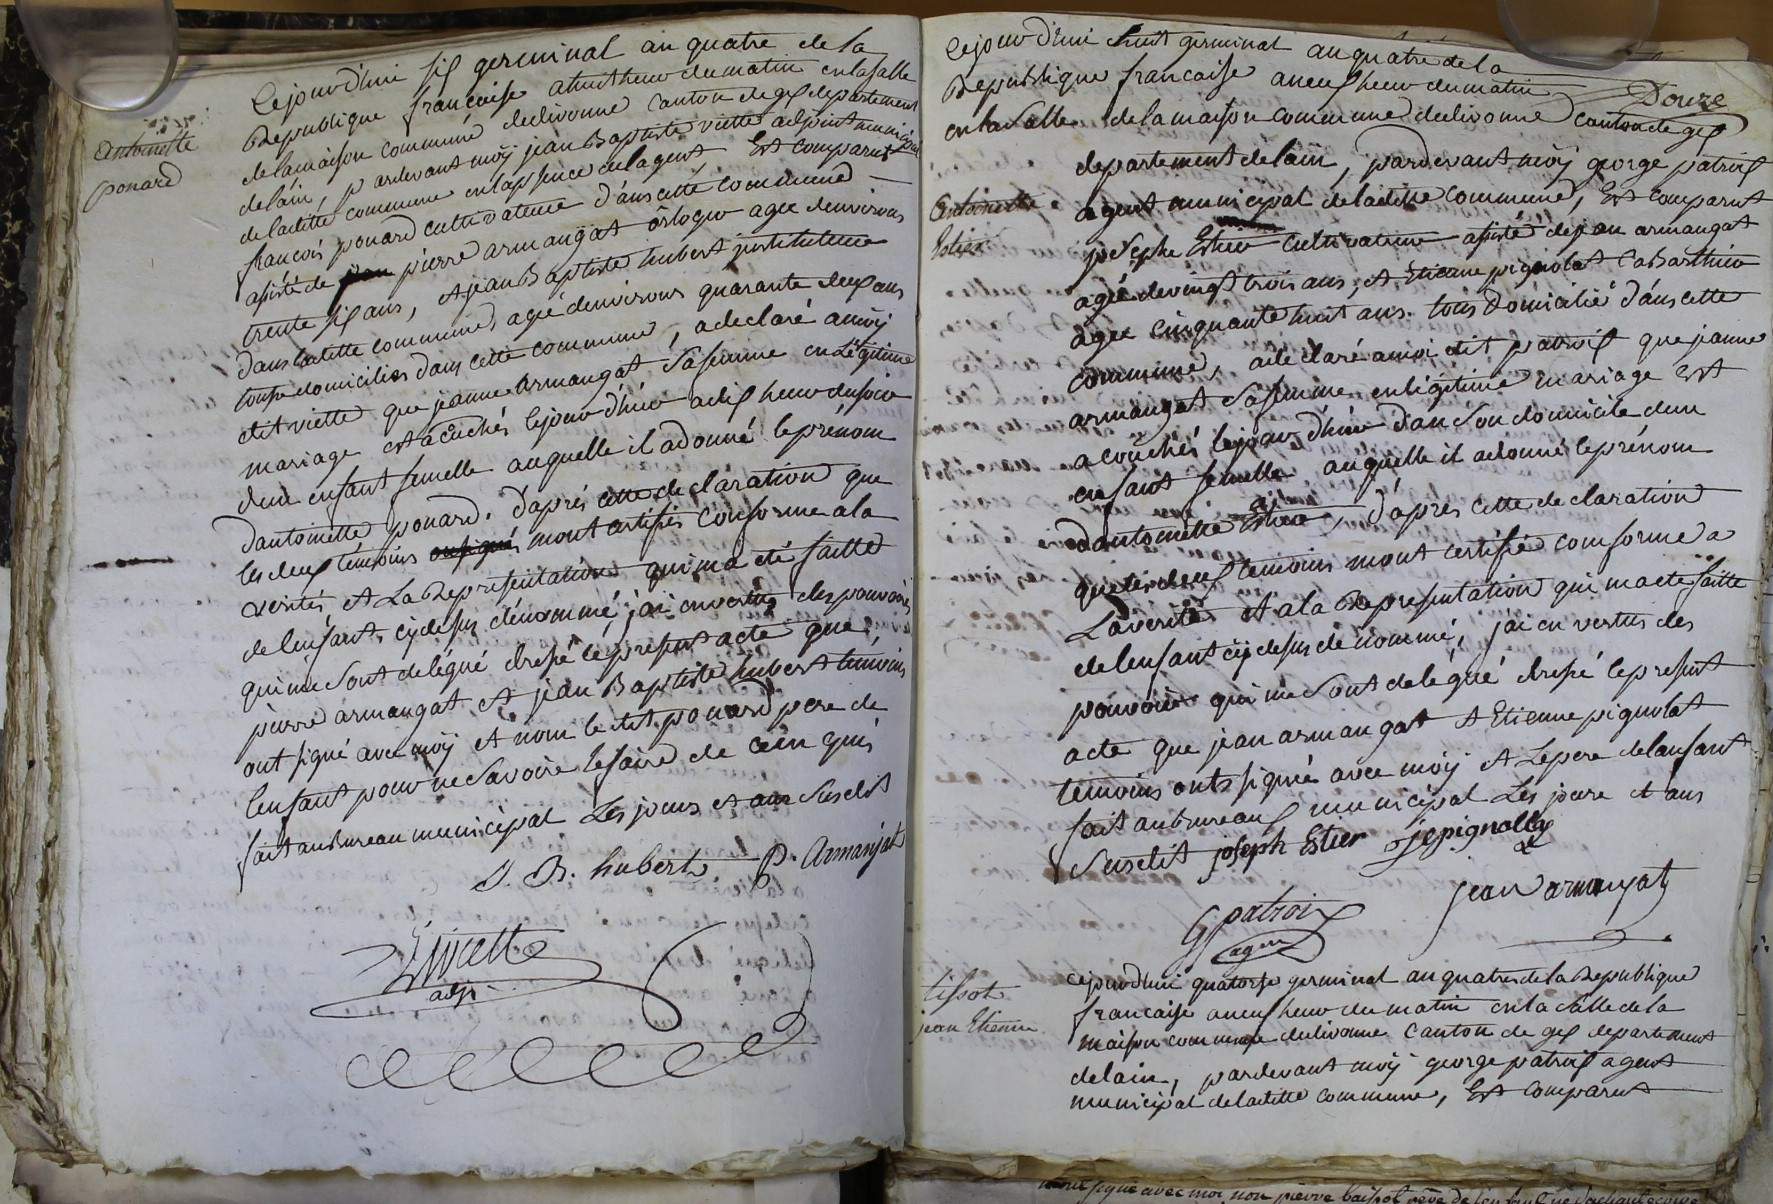 Antoinette
ponard
Cejourd'hui six germinal an quatre de la
Republique francaise a huit heur du matin en la salle
de la maison commune de divonne canton de gex departement
de lain, pardevant moÿ jean Baptiste viette adjoint municipal
de laditte commune en lapsence de lagent, Est comparut
francois ponard cultivateur d'ans cette commune
asisté de pierre armangat orloger agé denvirons
trente six ans, et jean Baptiste hubert jnstituteur
dans laditte commune, agé denvirons quarante deux ans
tous domiciliés dans cette commune, a declaré a moÿ
dit viette que jeanne armangat sa femme en Légitime
mariage est acuchés lejour d'hier a dix heur du soir
dun enfant femelle auquelle il a donné le prénom
dantoinette ponard. d'aprés cette declaration que
les deux témoins mont certifiés conforme a la
verités et La Representation qui ma eté faitte
de lenfant cy desus dénommé, j'ai en vertus des pouvoires
qui me sont delégué dresé le present acte que,
pierre armangat et jean Baptiste hubert temoins
ont signé avec moÿ et nom le dit ponard pere de
lenfant pour ne savoire le faire de cein quis
fait au bureau municipal Les jours et ans susdit
J. B. hubert. P. Armanjat
Viette
adjt
Cejourd'hui huit germinal an quatre de la
Republique francaise a neuf heur du matin
Douze
en la salle de la maison commune de divonne canton de gex
departement de lain, pardevant moÿ george patroix
agent municipal de laditte commune, Est comparut
Antoinette
Estier
joseph Estier cultivateur asisté de jean armangat
agé de vingt trois ans, et Etienne pignolat
agée cinquante huit ans. tous domicilié d'ans cette
commune, a declaré a moi dit patroix que jeanne
armangat sa femme en légitime mariage est
acouchés lejour d'hier dan son domicile dun
enfant femelle auquelle il a donné le prénom
dantoinette Estier, d'aprés cette declaration
que les deux temoins mont certifié comforme a
La verités et a la Representation qui ma eté faitte
de lenfant cÿ desus dénommé, j'ai en vertus des
pouvoires qui me sont delégué dresé le present
acte que jean armangat et Etienne pignolat
temoins onts signié avec moÿ et Le pere de lenfant
fait au bureaux municipal Les jours et ans
susdit joseph Estier jepignollet
jean armanjat
G patroix
agent
tissot
jean Etienne
cejourdhui quatorse germinal an quatre de la Republique
francaise a neuf heur du matin en la salle de la
maison commune de divonne canton de gex departement
de lain, pardevant moÿ george patroix agent
municipal de laditte commune, Est comparut